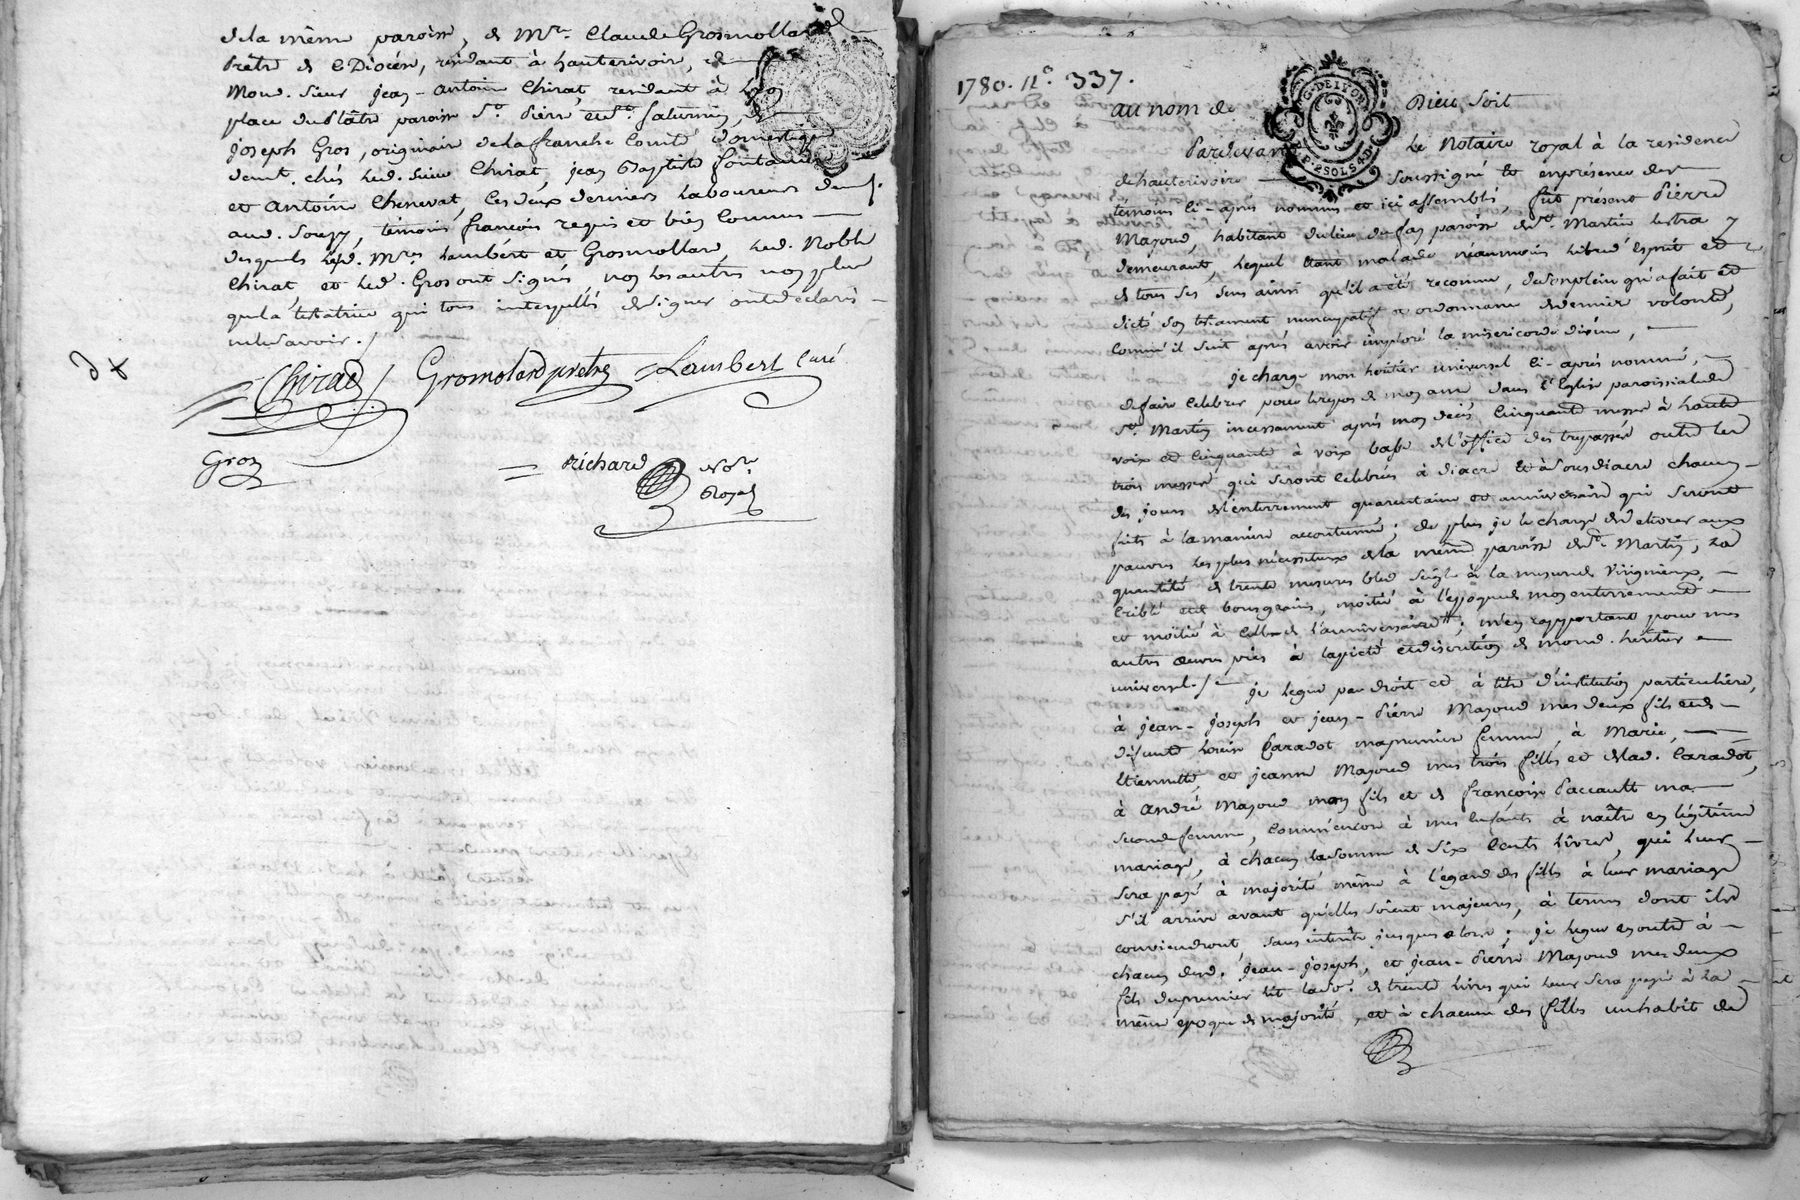 de la même paroisse, de Mre. Claude Grosmollard
Prêtre de ce Diocèse, résidant à hauterivoire, de
Mond. Sieur jean-antoine Chirat, residant à Lyon
place du plâtre paroisse St. Pierre et St. Saturnin, de
joseph Gros, originaire de la franche Comté domestique
demt. chés led. sieur Chirat, jean Baptiste fontaine
et antoine Chenevat, les deux derniers laboureurs dem.t
aud. Souzy, témoins françois requis et bien Connus
desquels lesd. Mres Lambert et Grosmollard, led. Noble
Chirat et led. Gros ont signés non les autres non plus
que la testatrice qui tous interpellés de signer ont déclarés
ne le savoir ./
Chirat Gromolard prêtre Lambert Curé
Gros
= Richard Nore
Royal
1780. N.º 337.
au nom de Dieu Soit
G. DELYON
P. 2 SOLS 4 D.
Pardevant Le Notaire royal à la residence
de hauterivoire soussigné et en présence des
temoins ci-après nommés et ici assemblés, fut présent Pierre
Mazoud, habitant du lieu du fay paroisse de St. Martin lestra y
demeurant, lequel étant malade néanmoins libre d'esprit et
de tous ses sens ainsi qu'il a été reconnu, de son plein gré a fait et
dicté son testament nuncupatif et ordonnance de dernier volonté,
comme il suit après avoir imploré la misericorde divine,
je charge mon héritier universel ci-après nommé,
de faire célébrer pour le repos de mon ame dans l'Eglise paroissiale de
St. Martin incessament après mon decès cinquante messes à haute
voix et cinquante à voix basse de l'office des trepassés outre les
trois messes qui seront célébrées à diacre et à sousdiacre chacun
des jours de l'enterrement quarantaine et anniversaire qui seront
faits à la maniere accoutumée ; de plus je le charge de délivrer aux
pauvres les plus nécessiteux de la même paroisse de St. Martin, la
quantité de trente mesures bled seigle à la mesure de Virignieux,
criblé et de bons grains, moitié à l'époque de mon enterrement
et moitié à celle de l'anniversaire ; m'en rapportant pour mes
autres œuvres pies à la pieté et discretion de mond. héritier
universel ./ je legue par droit et à titre d'institution particuliere,
à jean-joseph et jean-Pierre Mazoud mes deux fils et de
défunte Caradot ma premier femme, à Marie,
Etiennette, et jeanne Mazoud mes trois filles et de lad. Caradot,
à andré Mazoud mon fils et de françoise Paccault ma
seconde femme, comm'encore à mes enfants à naître en légitime
mariage, à chacun la somme de six cents livres, qui leur
sera payé à majorité même à l'égard des filles à leur mariage
s'il arrive avant qu'elles soient majeures, à termes dont ils
conviendront sans interêts jusques alors ; je legue en outre à
chacun desd. jean-joseph, et jean-Pierre Mazoud mes deux
fils du premier lit la so. de trente livres qui leur sera payé à la
même epoque de majorité, et à chacune des filles un habit de